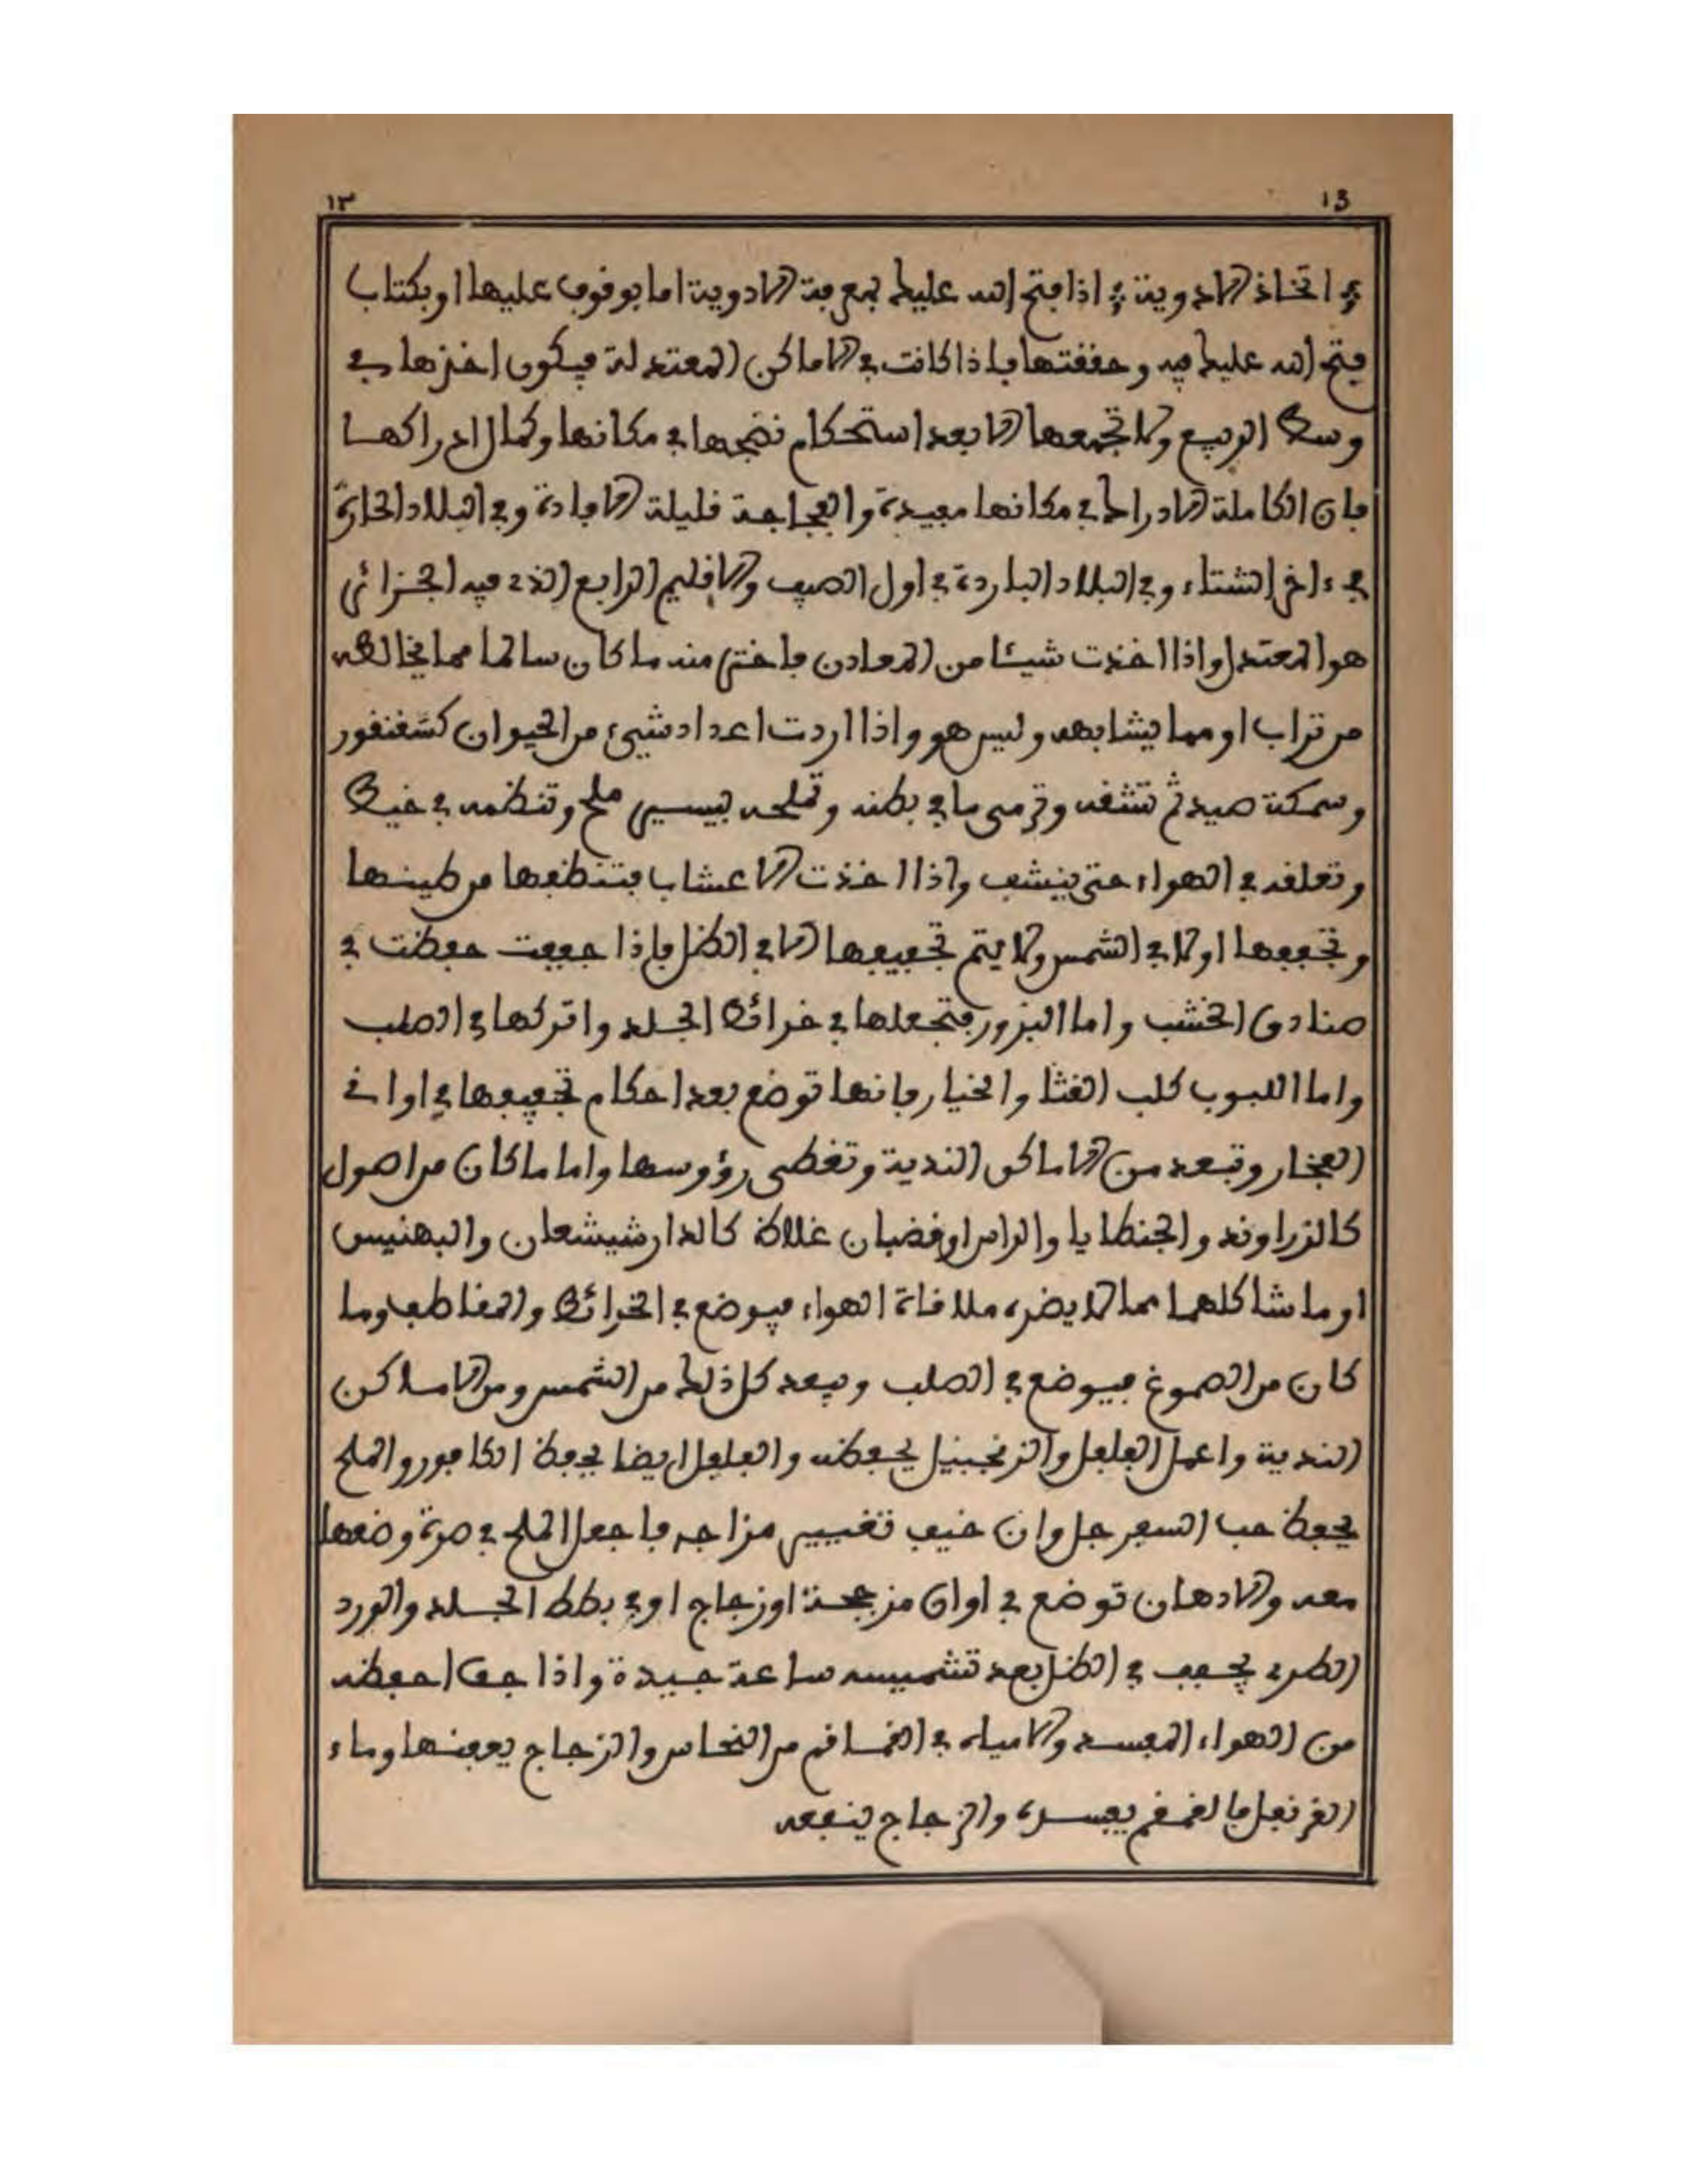 ١٣ 13
في اتخاذ الادوية * اذا فتح الله عليك بمعرفة الادوية اما بوقوف عليها او بكتاب
فتح الله عليك فيه وحققتها فاذا كانت في الاماكن المعتدلة فيكون اخزها في
وسط الربيع ولا تجمعها الا بعد استحكام نضجها في مكانها وكمال ادراكها
فان الكاملة الادراك في مكانها مفيدة والفجاجة قليلة الافادة وفي البلاد الحارة
في ءاخر الشتاء وفي البلاد الباردة في اول الصيف والاقليم الرابع الذي فيه الجزائر
هو المعتدل واذا اخذت شيئا من المعادن فاختر منه ما كان سالما مما يخالطه
من تراب او مما يشابهه وليس هو واذا اردت اعداد شيء من الحيوان كسقنقور
وسمكة صيد ثم تشقه وترمي ما في بطنه وتملحه بيسير ملح وتنظمه في خيط
وتعلقه في الهواء حتى ينشف واذا اخذت الاعشاب فتنظفها من طينها
وتجففها اولا في الشمس ولا يتم تجفيفها الا في الظل فاذا جففت حفظت في
صنادق الخشب واما البزور فتجعلها في خرائط الجلد واتركها في الصلب
واما اللبوب كلب القثا والخيار فانها توضع بعد احكام تجفيفها في اواني
الفخار وتبعد من الاماكن الندية وتغطى رؤوسها واما ما كان من اصول
كالزراوند والجنطايا والراسن او قضبان غلاظ كالدارشيشعان والبهنيس
او ما شاكلهما مما لا يضره ملاقاة الهواء فيوضع في الخرائط والمقاطف وما
كان من الصموغ فيوضع في الصلب ويبعد كل ذلك من الشمس ومن الاماكن
الندية واعمل الفلفل والزنجبيل يحفظه والفلفل ايضا يحفظ الكافور والملح
يحفظ حب السفرجل وان خيف تغيير مزاجه فاجعل الملح في صرة وضعها
معه والادهان توضع في اوان مزججة او زجاج او في بطط الجلد والورد
الطري يجفف في الظل بعد تشميسه ساعة جيدة واذا جف احفظه
من الهواء المفسد والامياه في القماقم من النحاس والزجاج يعفنها وماء
القرنفل فالقمقم يفسده والزجاج ينفعه